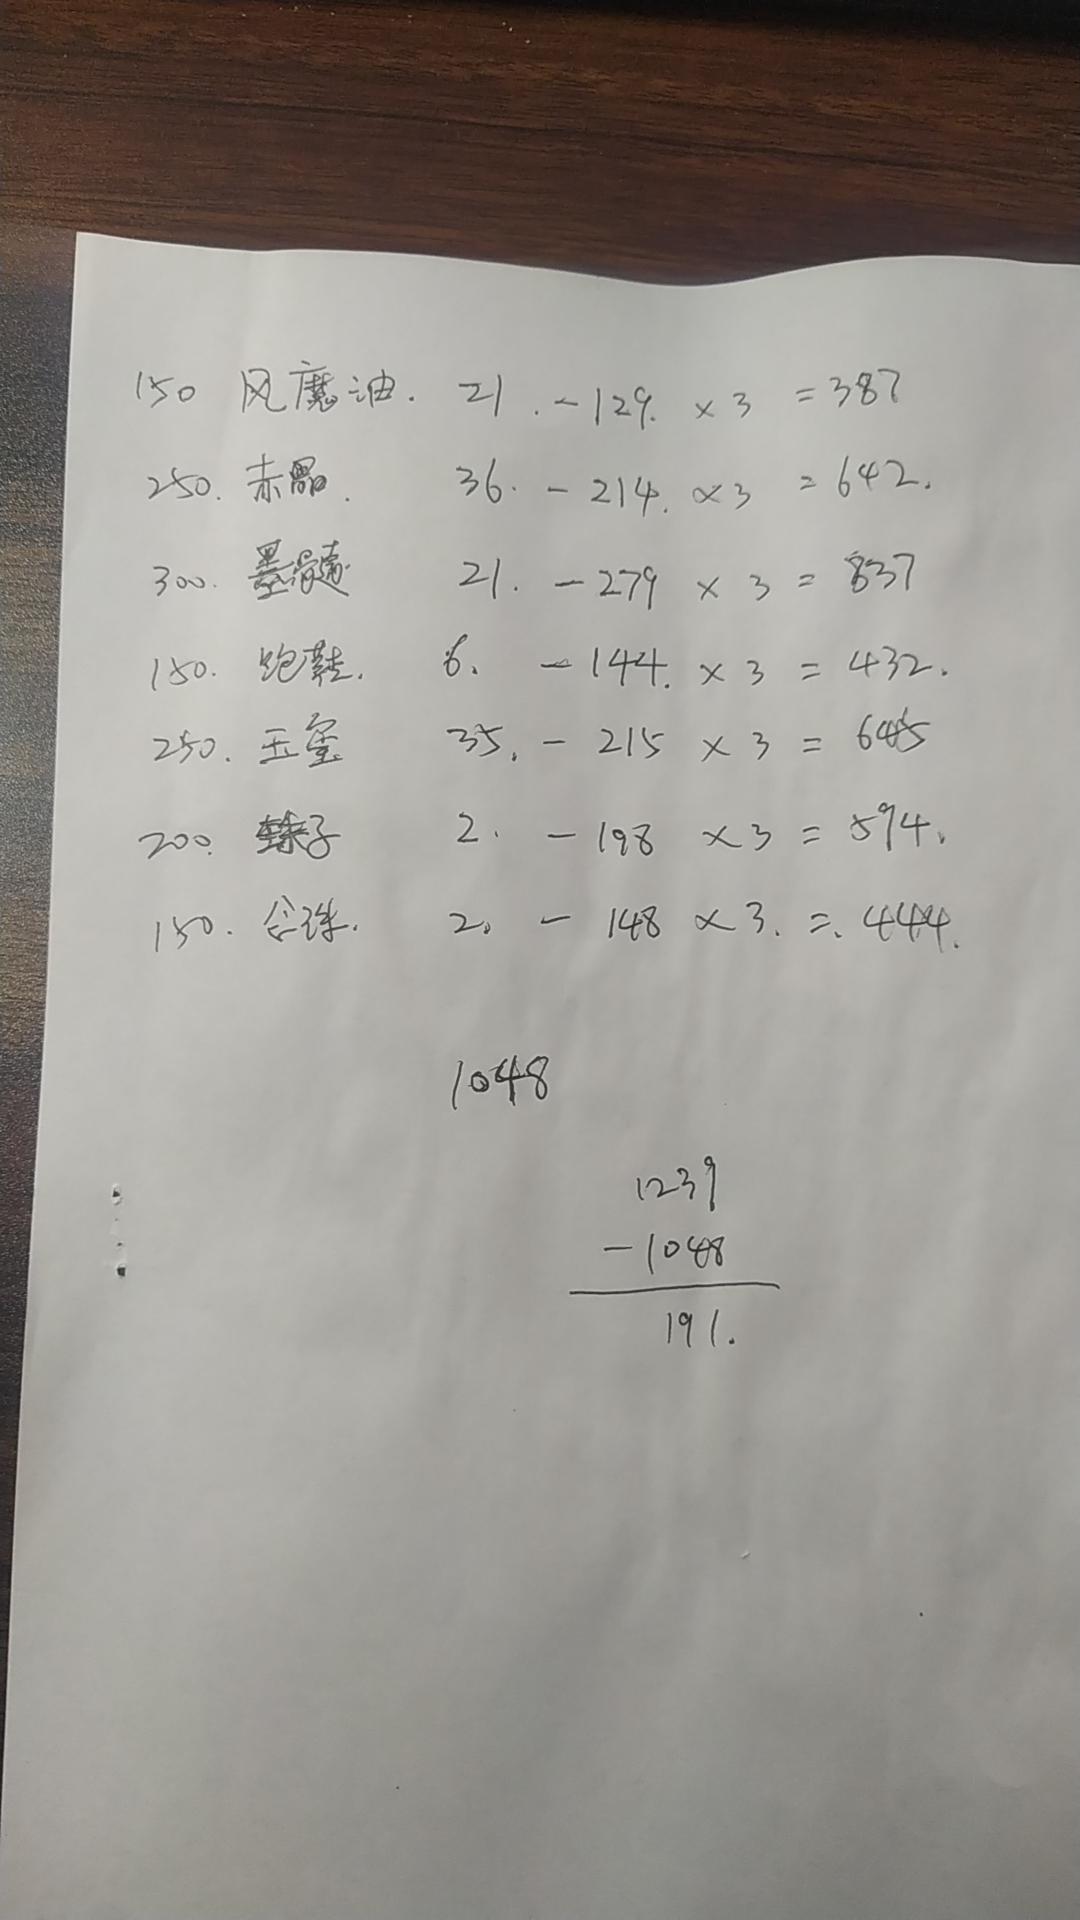 150 风魔油. 21. - 129. × 3 = 387
250. 赤晶. 36. - 214. × 3 = 642.
300. 墨髓 21. - 279 × 3 = 837
150. 跑鞋. 6. - 144. × 3 = 432.
250. 玉玺 35. - 215 × 3 = 645
200. 珠子 2. - 198 × 3 = 594.
150. 合珠. 2. - 148 × 3. =. 444.
1048
1239
-1048
191.